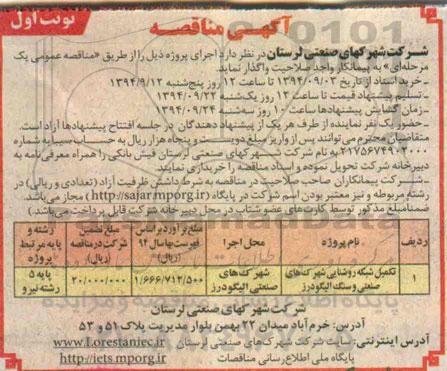 نوبت اول
آگهی مناقصه
شرکت شهرکهای صنعتی لرستان در نظر دارد اجرای پروژه ذیل را از طریق «مناقصه عمومی یک
مرحله‌ای» به پیمانکار واجد صلاحیت واگذار نماید.
ـ خرید اسناد از تاریخ ۱۳۹۴/۰۹/۰۳ تا ساعت ۱۲ روز پنج‌شنبه ۱۳۹۴/۹/۱۲
ـ تسلیم پیشنهاد قیمت تا ساعت ۱۳ روز یک‌شنبه ۱۳۹۴/۰۹/۲۲
ـ زمان گشایش پیشنهادها ساعت ۱۰ روز سه‌شنبه ۱۳۹۴/۰۹/۲۴
ـ حضور یک نفر نماینده از طرف هر یک از پیشنهاد دهندگان در جلسه افتتاح پیشنهادها آزاد است.
متقاضیان محترم می‌توانند پس از واریز مبلغ دویست و پنجاه هزار ریال به حساب سیبا به شماره
۲۱۷۵۶۷۴۹۰۳۰۰۰ به نام شرکت شهرکهای صنعتی لرستان فیش بانکی را همراه معرفی‌نامه به
دبیرخانه شرکت تحویل نموده و اسناد مناقصه را خریداری نمایند.
ـ شرکت پیمانکاران صاحب صلاحیت در مناقصه به شرط داشتن ظرفیت آزاد (تعدادی و ریالی) در
رشته مربوطه و نیز معتبر بودن اسم شرکت در پایگاه (http://sajar.mporg.ir) مجاز می‌باشد.
ضمنا مبلغ مذکور توسط کارت‌های عضو شتاب در محل دبیر خانه شرکت قابل پرداخت می‌باشد.
ردیف نام پروژه محل اجرا مبلغ برآورد بر اساس فهرست بها سال ۹۴ (ریال) مبلغ تضمین شرکت در مناقصه (ریال) رشته و پایه مرتبط پروژه
۱ تکمیل شبکه روشنایی شهرک‌های صنعتی و سنگ الیگودرز شهرک‌های صنعتی الیگودرز ۱/۶۶۶/۷۱۲/۵۰۰ ۲۰/۰۰۰/۰۰۰ پایه ۵ رشته نیرو
شرکت شهرک های صنعتی لرستان
آدرس: خرم آباد میدان ۲۲ بهمن بلوار مدیریت پلاک ۵۱ و ۵۳
آدرس اینترنتی: سایت شرکت شهرک‌های صنعتی لرستان www.Lorestaniec.ir
پایگاه ملی اطلاع رسانی مناقصات http://iets.mporg.ir